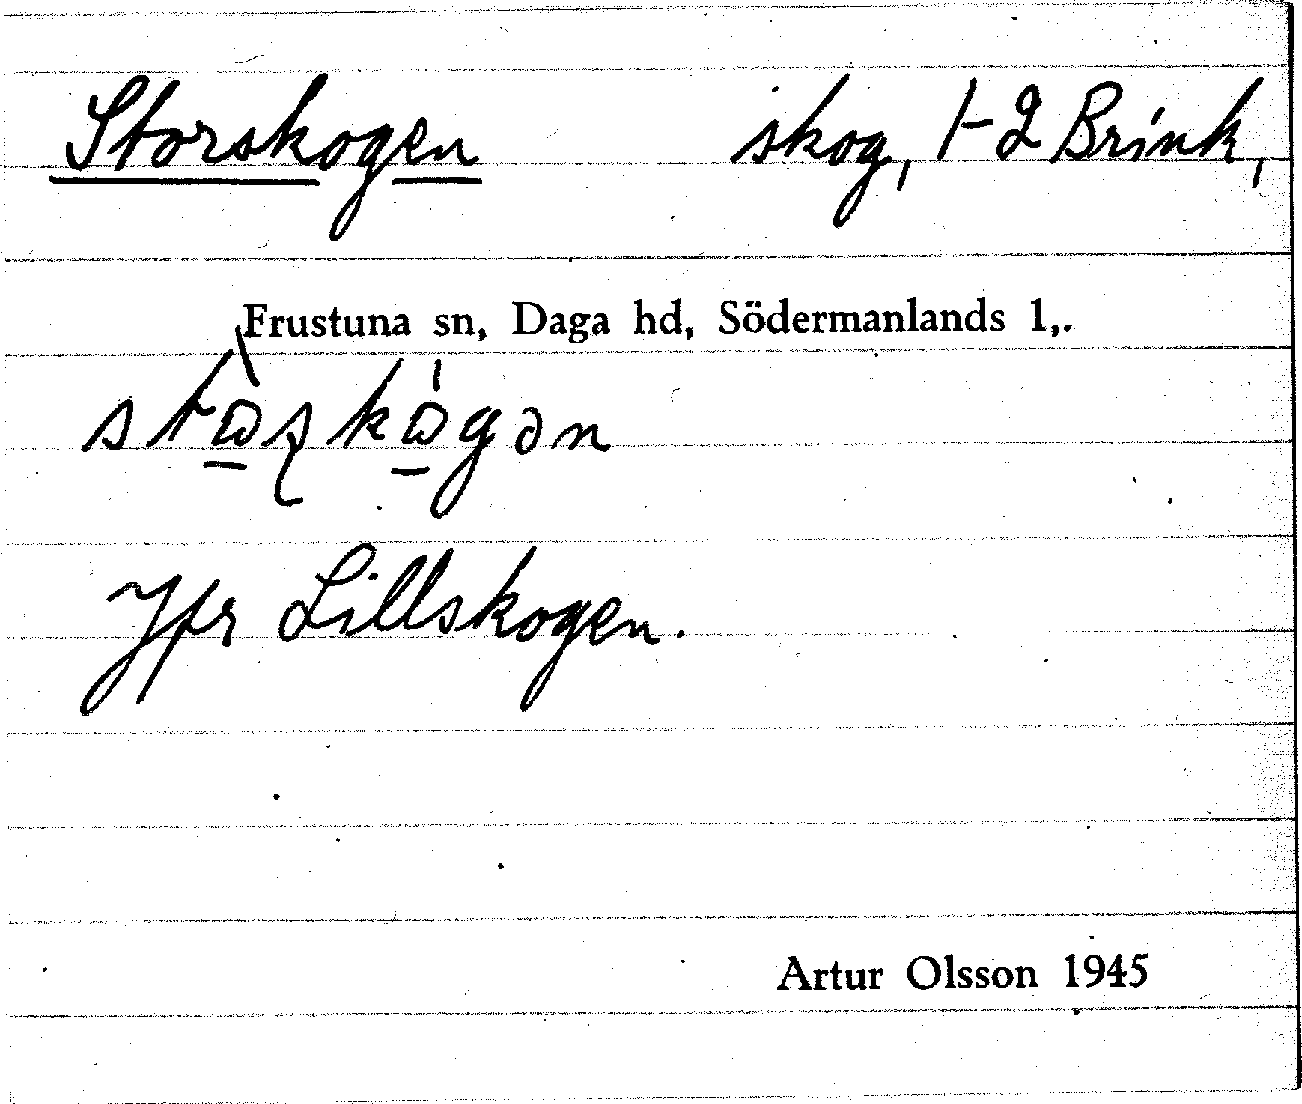 Storskogen skog, 1-2 Brink,
Frustuna sn, Daga hd, Södermanlands l,.
Jfr Lillskogen.
Artur Olsson 1945